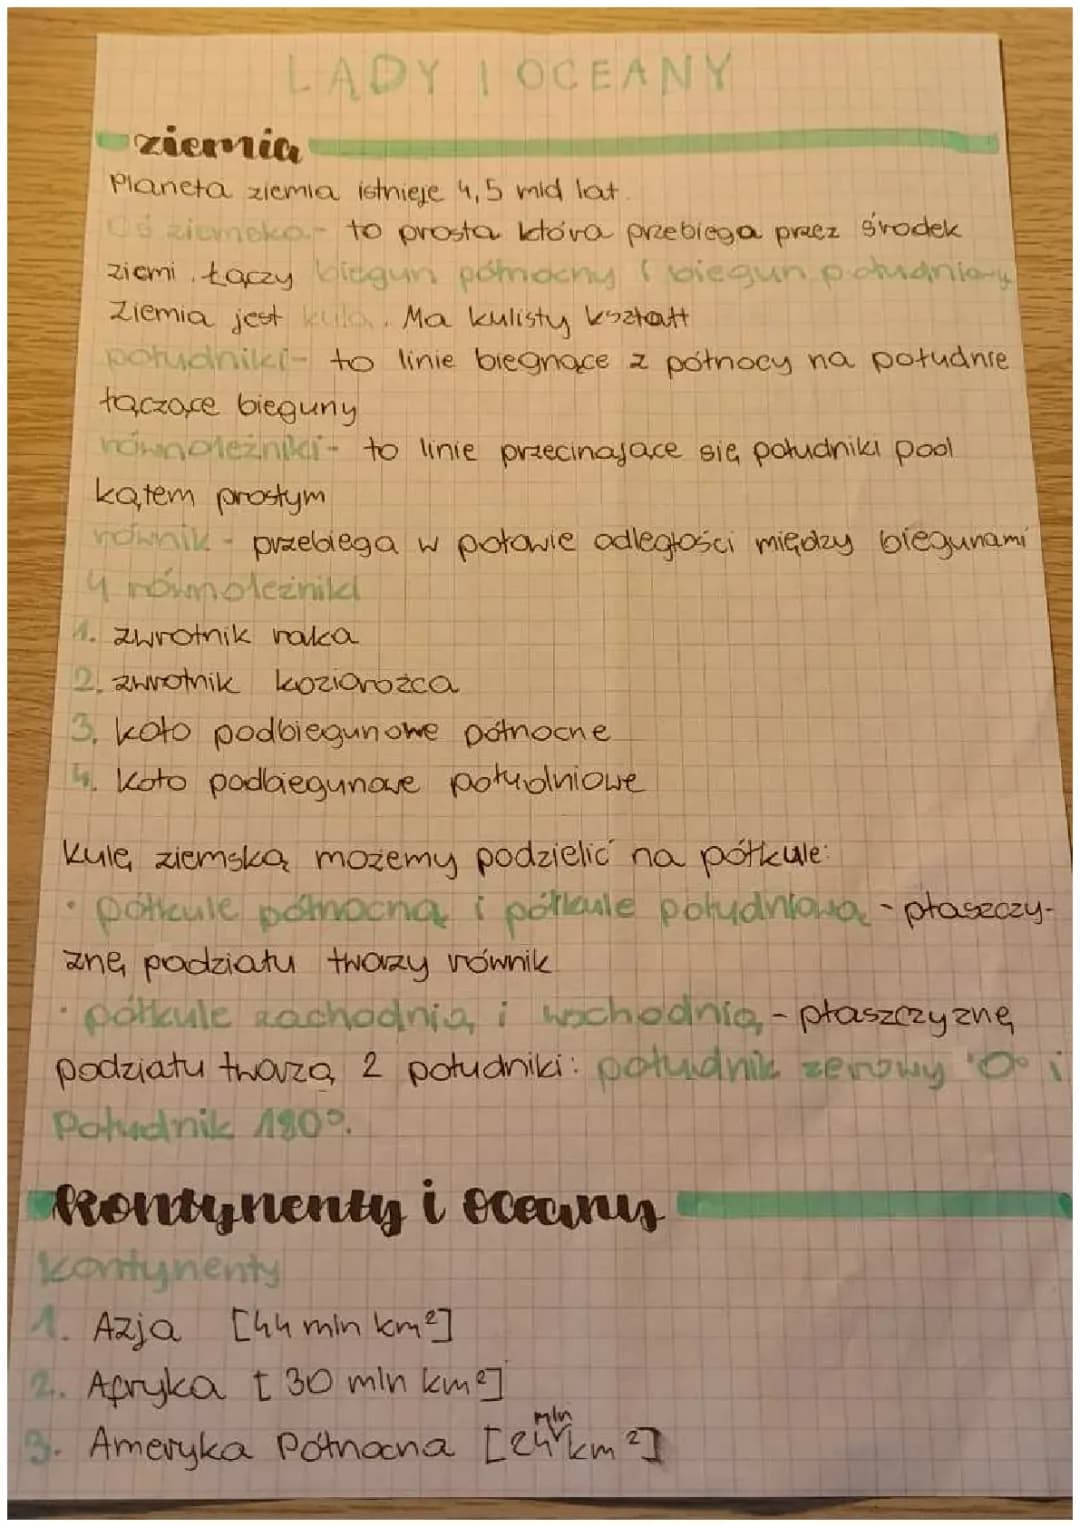 LĄDY I OCEANY
ziemia
Planeta ziemia istnieje 4,5 mld lat.
Oś ziemska - to prosta która przebiega przez środek
ziemi. Łączy biegun północny i biegun południowy
Ziemia jest kulą. Ma kulisty kształt
południki - to linie biegnące z północy na południe
łączące bieguny
równoleżniki - to linie przecinające się południki pod
kątem prostym
równik - przebiega w połowie odległości między biegunami
4 równoleżniki
1. zwrotnik raka
2. zwrotnik koziorożca
3. koło podbiegunowe północne
4. koło podbiegunowe południowe
Kulę ziemską możemy podzielić na półkule:
• półkule północną i półkule południową - płaszczy-
znę podziału tworzy równik
• półkule zachodnią i wschodnią - płaszczyznę
podziału tworzą 2 południki: południk zerowy '0° i
Południk 180°.
Kontynenty i oceany
kontynenty
1. Azja [44 mln km²]
2. Afryka [30 mln km²]
3. Ameryka Północna [24 mln km²]